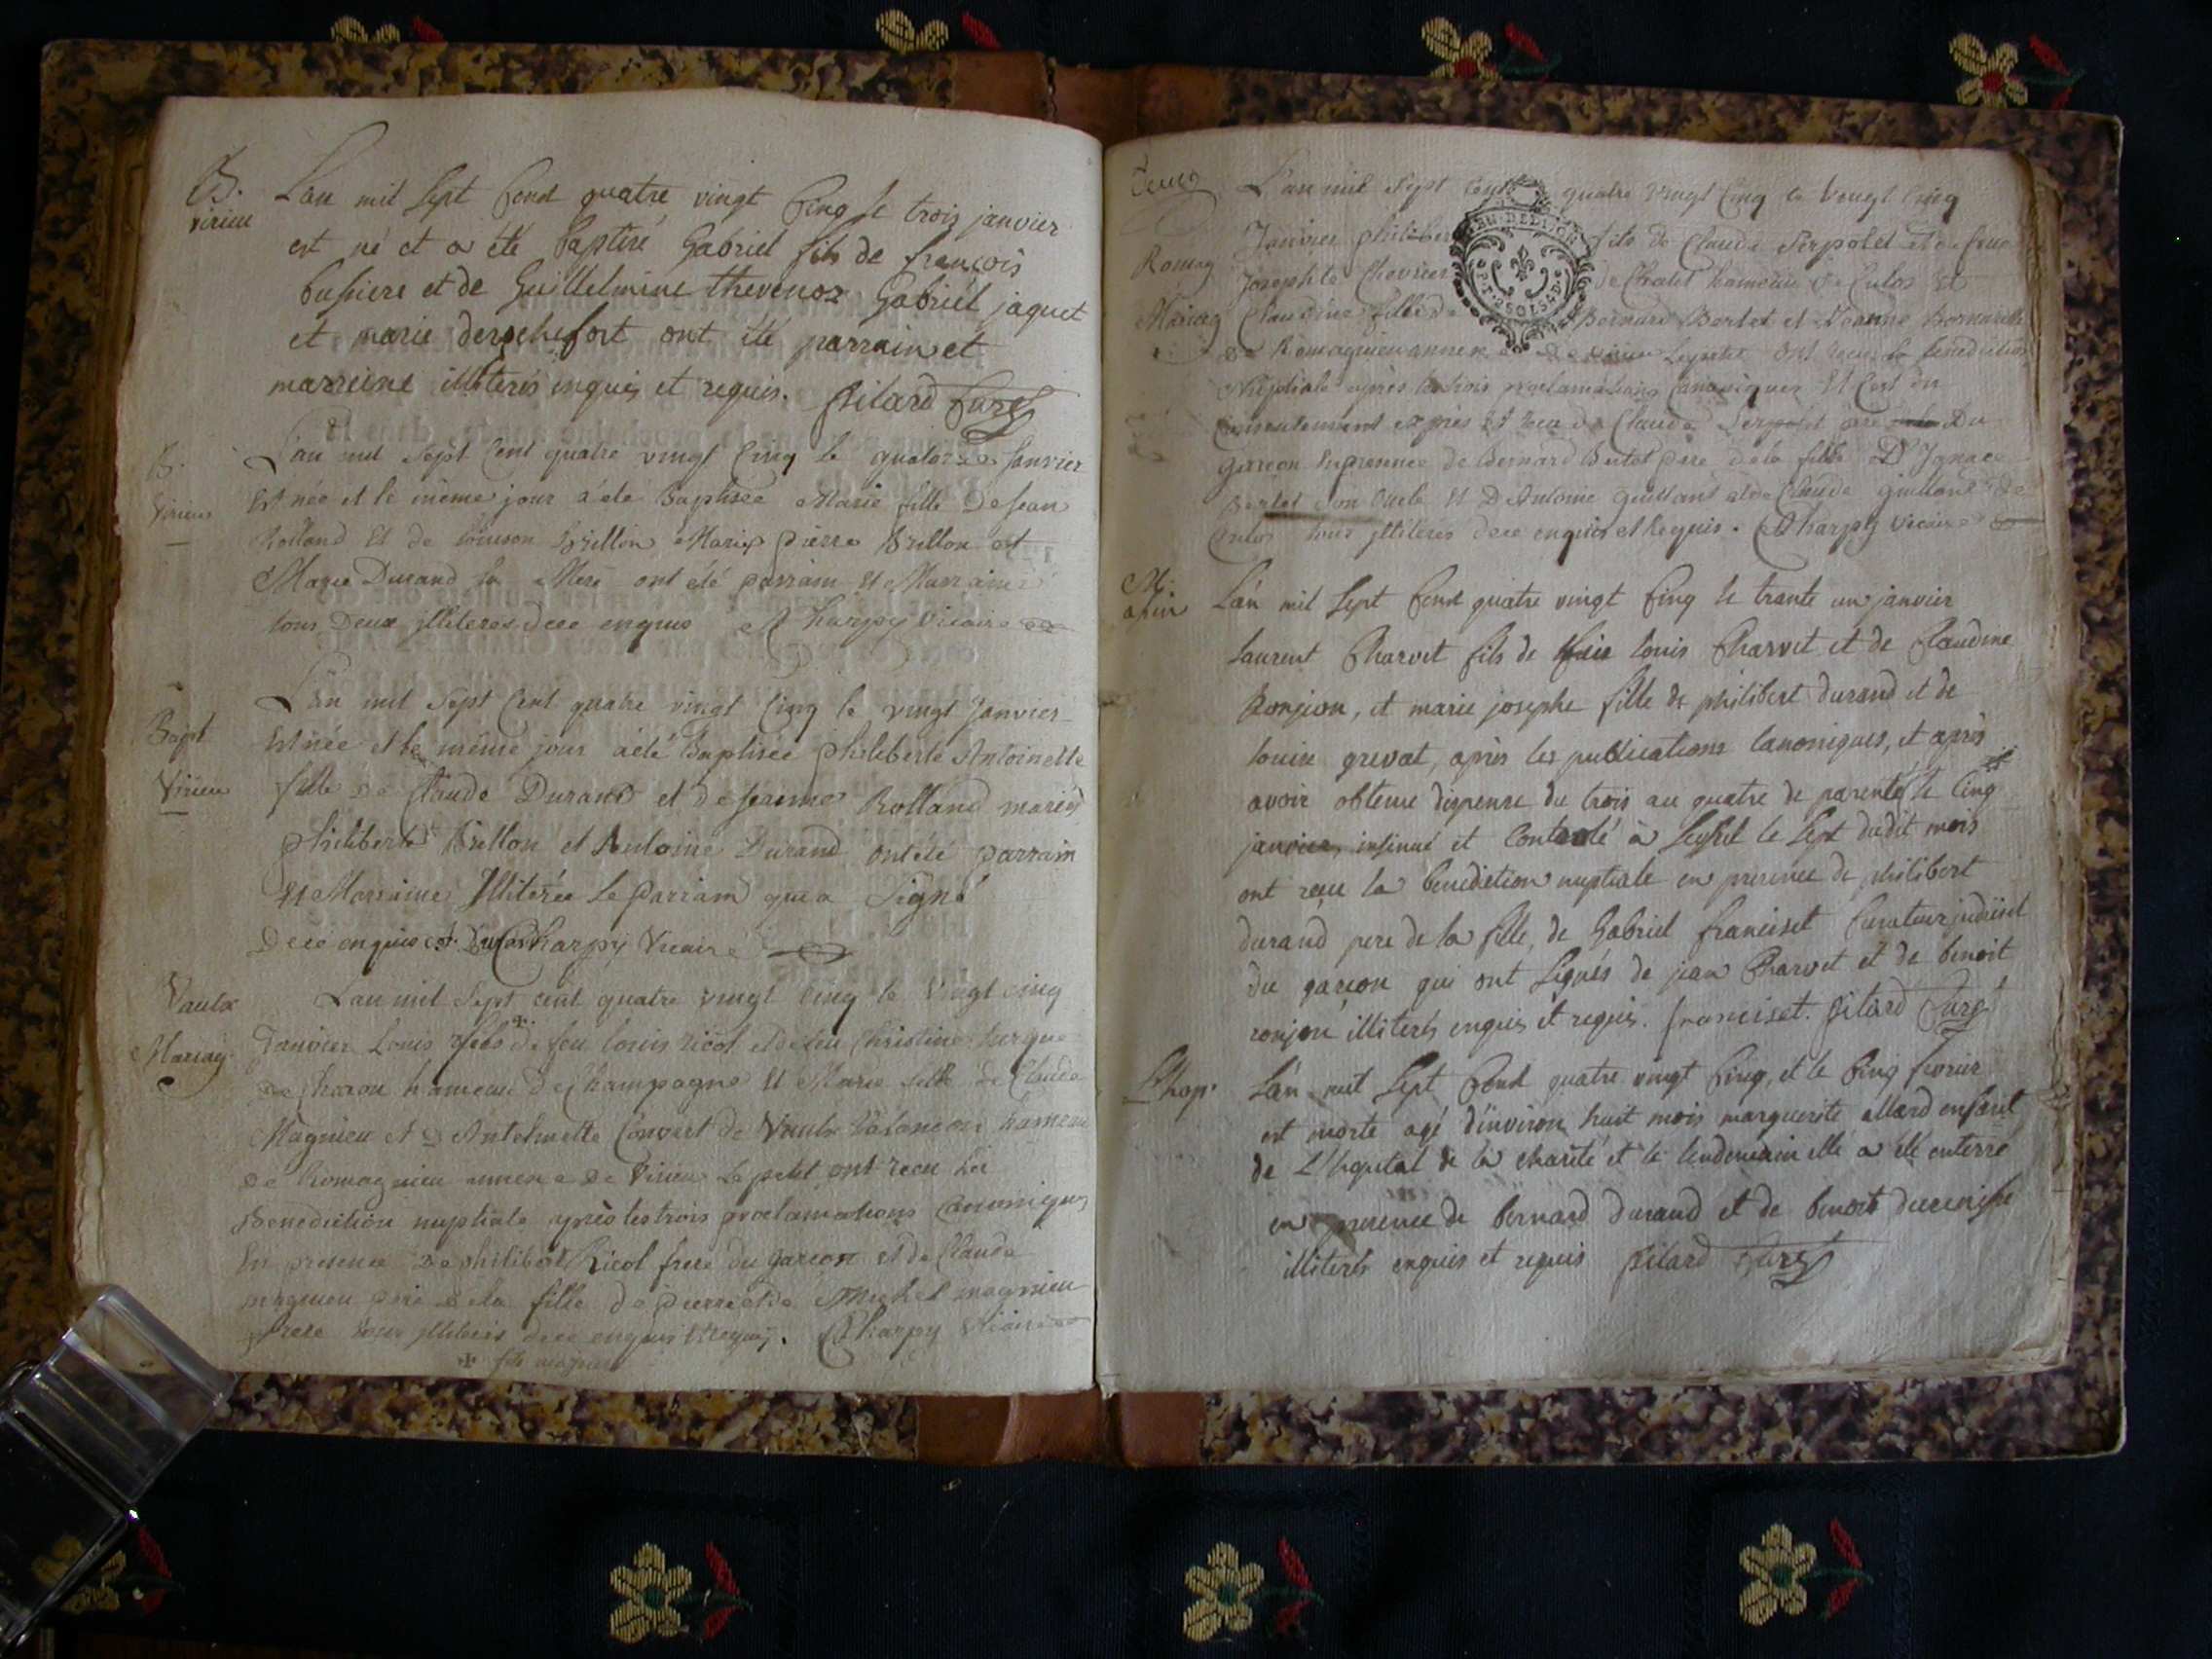 B.
virieu
L'an mil sept cent quatre vingt cinq le trois janvier
est né et a été baptisé Gabriel fils de françois
bussiere et de Guillelmine thevenoz Gabriel jaquet
et marie derochefort ont été parrain et
marreine illiterés enquis et requis. pitard Curé
B.
Virieu
L'an mil sept Cent quatre vingt Cinq le quatorze Janvier
Est née et le même jour a été baptisée Marie fille De Jean
Rolland Et de Brillon Mariés pierre Brillon et
Marie Durand sa Mere ont été parrain Et Marraine
tous Deux jlliteres dece enquis Charpy Vicaire
Bapt
Virieu
L'an mil sept Cent quatre vingt Cinq le vingt Janvier
Est née et le même jour a été Baptisée philiberte Antoinette
fille de Claude Durand et de Rolland mariés
philiberte Brillon et Antoine Durand ont été parrain
Et Marraine Jlliterée Le parrain qui a signé
Dece enquis Charpy Vicaire
Vaulx
Mariag
L'an mil sept cent quatre vingt cinq le vingt cinq
Janvier Louis de feu louis ricol et de feu Christine
de hameau de Champagne Et Marie fille de Claude
Magnieu et Antelmette Convert de Vaulx hameau
de Romagnieu annexe de Virieu Le petit ont recu La
Benediction nuptiale après les trois proclamations Canoniques
En presence De philibert Ricol frere du garcon et de Claude
magnieu pere de la fille de pierre et de Michel magnieu
frere tous jlliterés dece enquis Et requis. Charpy Vicaire
fils majeur
Romag
Mariag
L'an mil sept cent quatre vingt Cinq le Vingt Cinq
Janvier philibert fils de Claude Serpolet et de feue
Josephte Chevrier de Chatel hameau de Culoz Et
Claudine fille de Bernard Bertet et Jeanne
De Romagnieu annexe de virieu Lepetit ont recu la benediction
Nuptiale après les trois proclamations Canoniques Et Cest du
Consentement exprès Et recu de Claude Serpolet pere Du
garcon En presence de Bernard Bertet pere de la fille D'Ignace
Bertet son oncle Et D'Antoine Guilland et de Claude guilland de
Culoz tous jlliteres dece enquis et Requis. Charpy vicaire
M.
L'an mil sept cent quatre vingt cinq le trante un janvier
laurent Charvet fils de louis Charvet et de Claudine
Ronjon, et marie josephe fille de philibert durand et de
louise grevat, après les publications canoniques, et après
avoir obtenu dispense du trois au quatre de parenté le Cinq
janvier, insinué et Contrôlé à Seyssel le sept dudit mois
ont reçu la benediction nuptiale en presence de philibert
durand pere de la fille, de Gabriel franciset Curateur
du garcon qui ont signés de jean Charvet et de benoit
ronjon illiterés enquis et requis. franciset. pitard Curé
L'hop.
L'an mil sept Cent quatre vingt Cinq, et le Cinq fevrier
est morte agé d'environ huit mois marguerite allard enfant
de L'hopital de la charité et le lendemain elle a été enterré
en presence de bernard durand et de benoit
illiterés enquis et requis pitard Curé